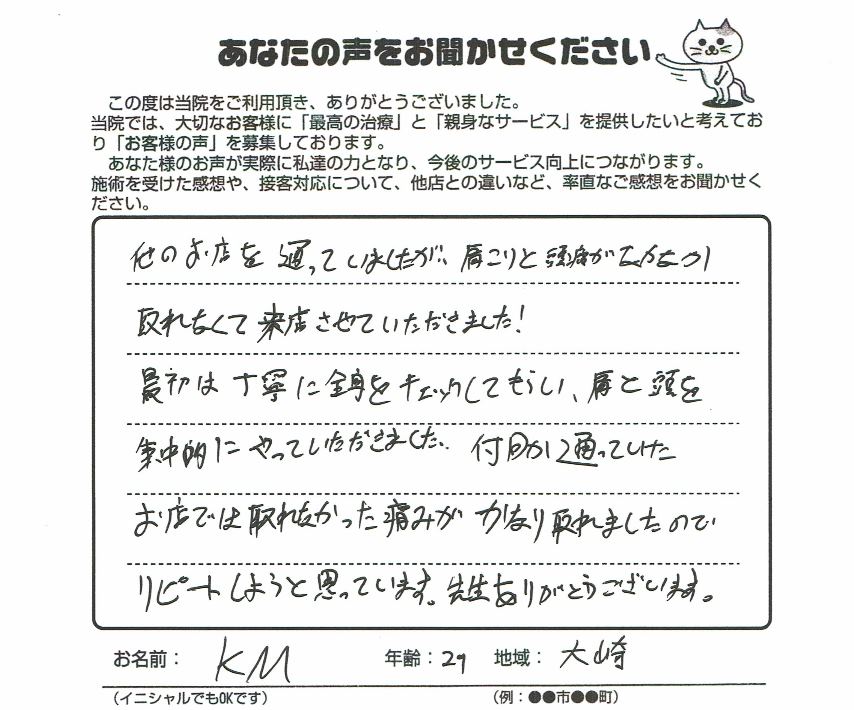 あなたの声をお聞かせください
この度は当院をご利用頂き、ありがとうございました。
当院では、大切なお客様に「最高の治療」と「親身なサービス」を提供したいと考えてお
り「お客様の声」を募集しております。
あなた様のお声が実際に私達の力となり、今後のサービス向上につながります。
施術を受けた感想や、接客対応について、他店との違いなど、率直なご感想をお聞かせく
ださい。
他のお店を通っていましたが、肩こりと頭痛がなかなか
取れなくて来店させていただきました!
最初は丁寧に全身をチェックしてもらい、肩と頭を
集中的にやっていただきました。何回か通っていた
お店では取れなかった痛みがかなり取れましたので
リピートしようと思っています。先生ありがとうございます。
お名前: KM 年齢: 29 地域: 大崎
(イニシャルでもOKです) (例:●●市●●町)